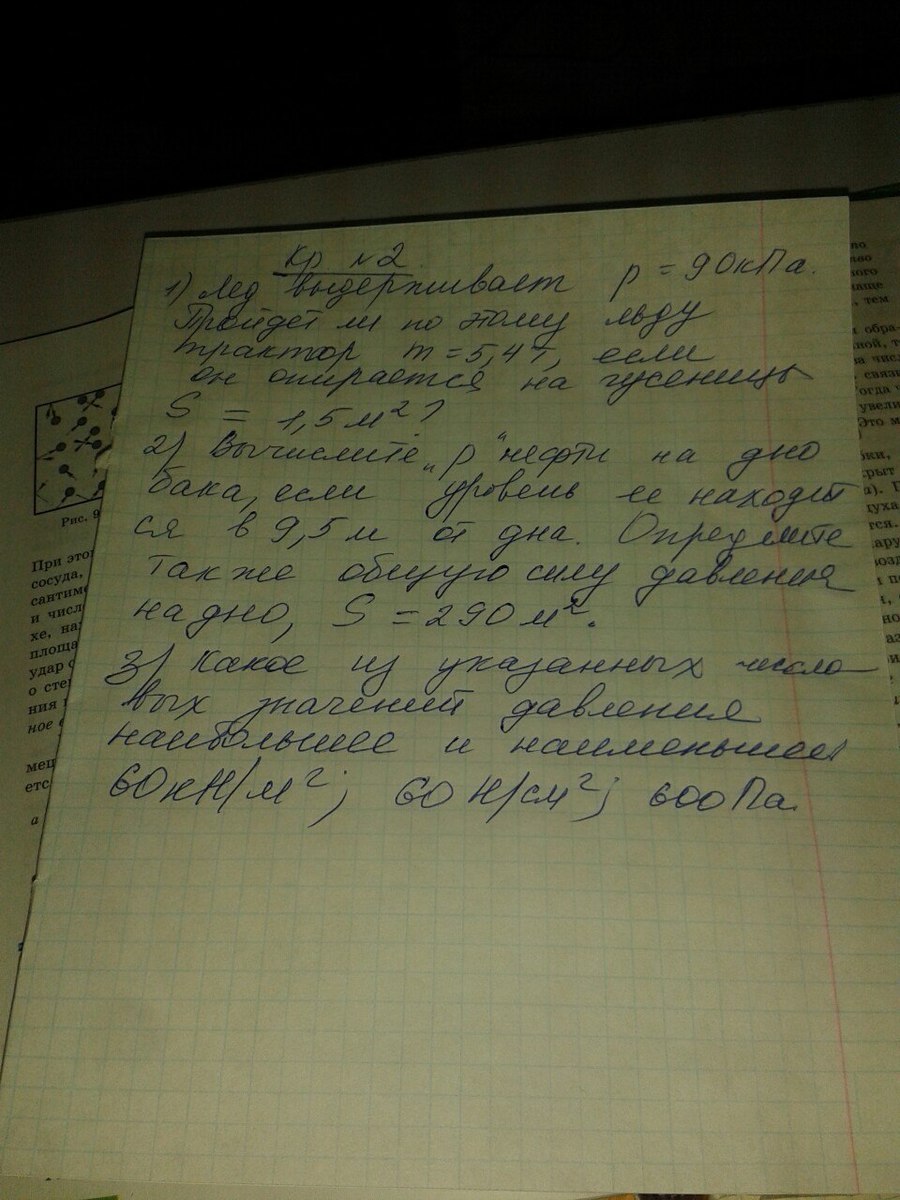 Кр №2
1) Лед выдерживает p = 90кПа.
Пройдет ли по этому льду
трактор m = 5,4т, если
он опирается на гусеницы
S = 1,5 м²?
2) Вычислите "p" нефти на дно
бака, если уровень ее находит
ся в 9,5 м от дна. Определите
также общую силу давления
на дно, S = 290 м².
3) Какое из указанных число
вых значений давления
наибольшее и наименьшее
60кН/м²; 60 Н/см²; 600Па.
Рис. 9
При этом
сосуда,
сантиме
и число
хе, на
площа
удар о
о сте
ния
ное
мец
етс
а